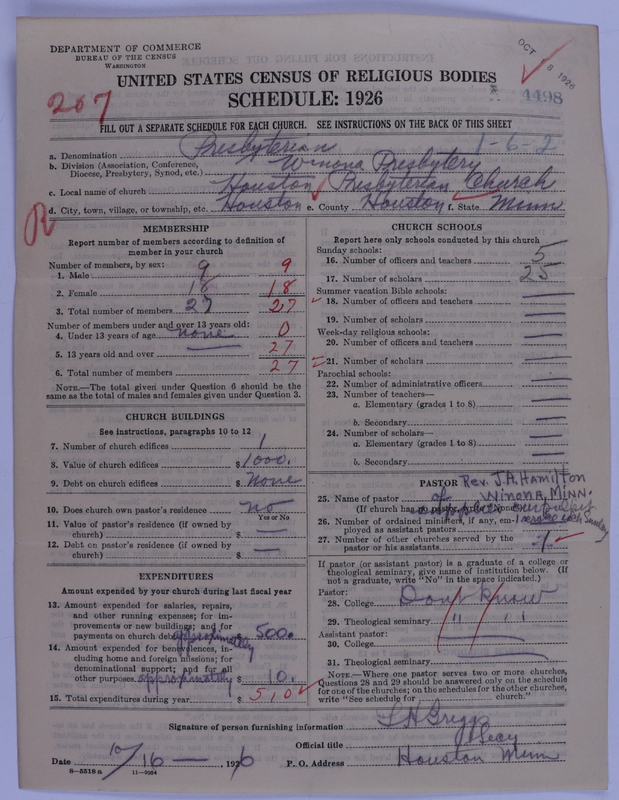 DEPARTMENT OF COMMERCE
BUREAU OF THE CENSUS
WASHINGTON
OCT 18 1926
UNITED STATES CENSUS OF RELIGIOUS BODIES
SCHEDULE: 1926
4498
267
FILL OUT A SEPARATE SCHEDULE FOR EACH CHURCH. SEE INSTRUCTIONS ON THE BACK OF THIS SHEET
1-6-2
a. Denomination Presbyterian
b. Division (Association, Conference, Diocese, Presbytery, Synod, etc.) Winona Presbytery
c. Local name of church Houston Presbyterian Church
d. City, town, village, or township, etc. Houston e. County Houston f. State Minn
R
MEMBERSHIP
Report number of members according to definition of
member in your church
Number of members, by sex:
1. Male 9 9
2. Female 18 18
3. Total number of members 27 27
Number of members under and over 13 years old:
4. Under 13 years of age none 0
5. 13 years old and over 27
6. Total number of members 27
NOTE.—The total given under Question 6 should be the
same as the total of males and females given under Question 3.
CHURCH BUILDINGS
See instructions, paragraphs 10 to 12
7. Number of church edifices 1
8. Value of church edifices $ 1000.
9. Debt on church edifices $ None
10. Does church own pastor's residence? no
Yes or No
11. Value of pastor's residence (if owned by
church) $
12. Debt on pastor's residence (if owned by
church) $
EXPENDITURES
Amount expended by your church during last fiscal year
13. Amount expended for salaries, repairs,
and other running expenses; for im-
provements or new buildings; and for
payments on church debt approximately $ 500.
14. Amount expended for benevolences, in-
cluding home and foreign missions; for
denominational support; and for all
other purposes. approximately $ 10.
15. Total expenditures during year $ 510
CHURCH SCHOOLS
Report here only schools conducted by this church
Sunday schools:
16. Number of officers and teachers 5
17. Number of scholars 25
Summer vacation Bible schools:
18. Number of officers and teachers
19. Number of scholars
Week-day religious schools:
20. Number of officers and teachers
21. Number of scholars
Parochial schools:
22. Number of administrative officers
23. Number of teachers—
a. Elementary (grades 1 to 8)
b. Secondary
24. Number of scholars—
a. Elementary (grades 1 to 8)
b. Secondary
PASTOR Rev. J.A. Hamilton
25. Name of pastor of Winona, Minn.
(If church has no pastor, write "None")
26. Number of ordained ministers, if any, em-
ployed as assistant pastors
27. Number of other churches served by the
pastor or his assistants
If pastor (or assistant pastor) is a graduate of a college or
theological seminary, give name of institution below. (If
not a graduate, write "No" in the space indicated.)
Pastor:
28. College Don't know
29. Theological seminary " "
Assistant pastor:
30. College
31. Theological seminary
NOTE.—Where one pastor serves two or more churches,
Questions 28 and 29 should be answered only on the schedule
for one of the churches; on the schedules for the other churches,
write "See schedule for church."
Signature of person furnishing information Griggs
Official title Secy
Date 10/16 — , 1926 P. O. Address Houston Minn
8—5518 a 11—9264